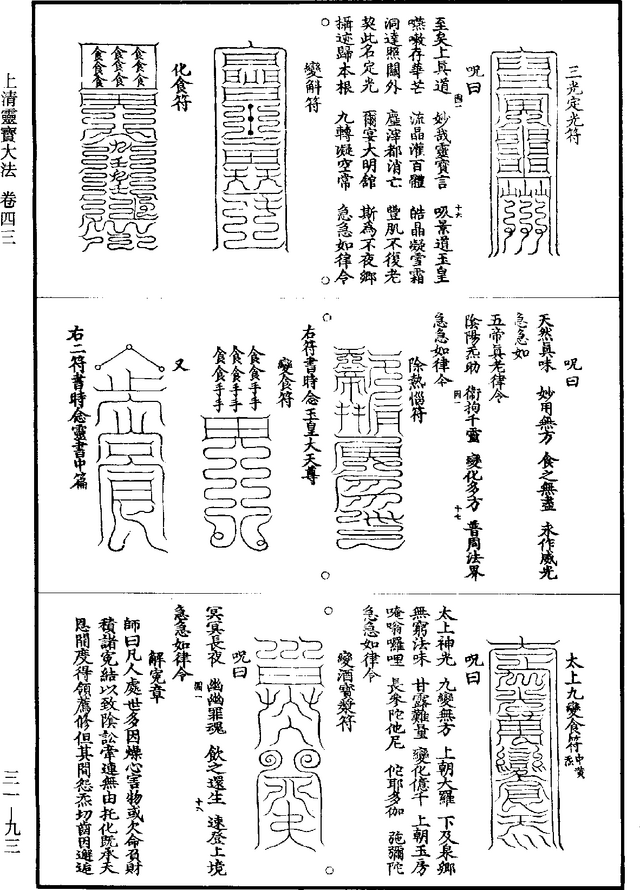 上清靈寶大法 卷四三
三一-九三
三光定光符
呪曰
至矣上真道 妙哉靈寶言 吸景道玉皇
嚥嗽存華芒 流晶灌百體 皓晶凝雪霜
洞達照關外 塵滓都消亡 豐肌不復老
契此名定光 爾室大明館 斯為不夜鄉
攝迹歸本根 九轉凝空常 急急如律令
變斛符
化食符
食食食
食食食
食食食
呪曰
天然真味 妙用無方 食之無盡 永作威光
急急如
五帝真老律令
陰陽烝助 衛拘千靈 變化多方 普周法界
急急如律令
除熱惱符
右符書時念玉皇大天尊
變食符
食食手手
食食手手
食食手手
又
右二符書時念靈書中篇
太上九變食符中黄炁
呪曰
太上神光 九變無方 上朝大羅 下及泉鄉
無窮法味 甘露難量 變化億千 上朝玉房
唵嗡囉哩 長參陀他尼 佗耶多伽 菢彌陀
急急如律令
變酒寶漿符
呪曰
冥冥長夜 幽幽罪魂 飲之還生 速登上境
急急如律令
解寃章
師曰凡人處世多因燥心害物或欠命負財
積諸寃結以致陰訟常連無由托化既承天
恩開度得領薦修但其間怨炁切齒因邂逅